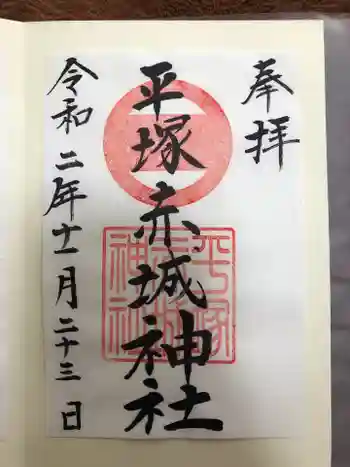 奉拝
平塚赤城神社
平塚
赤城
神社
令和二年十一月二十三日